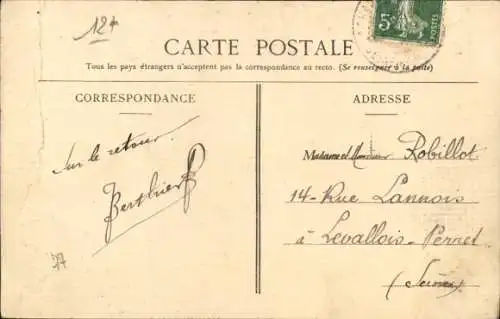 12+
5c
POSTES
CARTE POSTALE
Tous les pays étrangers n'acceptent pas la correspondance au recto. (Se renseigner à la poste)
CORRESPONDANCE
ADRESSE
Sur le retour.
Berthier
Madame et Monsieur Robillot
14 - Rue Lannois
à Levallois-Perret
(Seine)